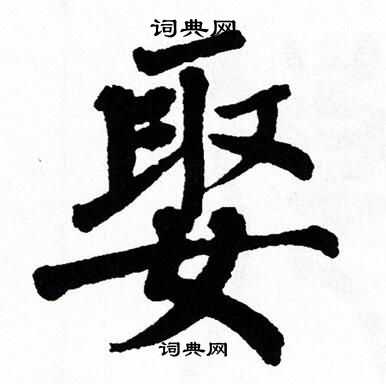 词典网
娶
词典网